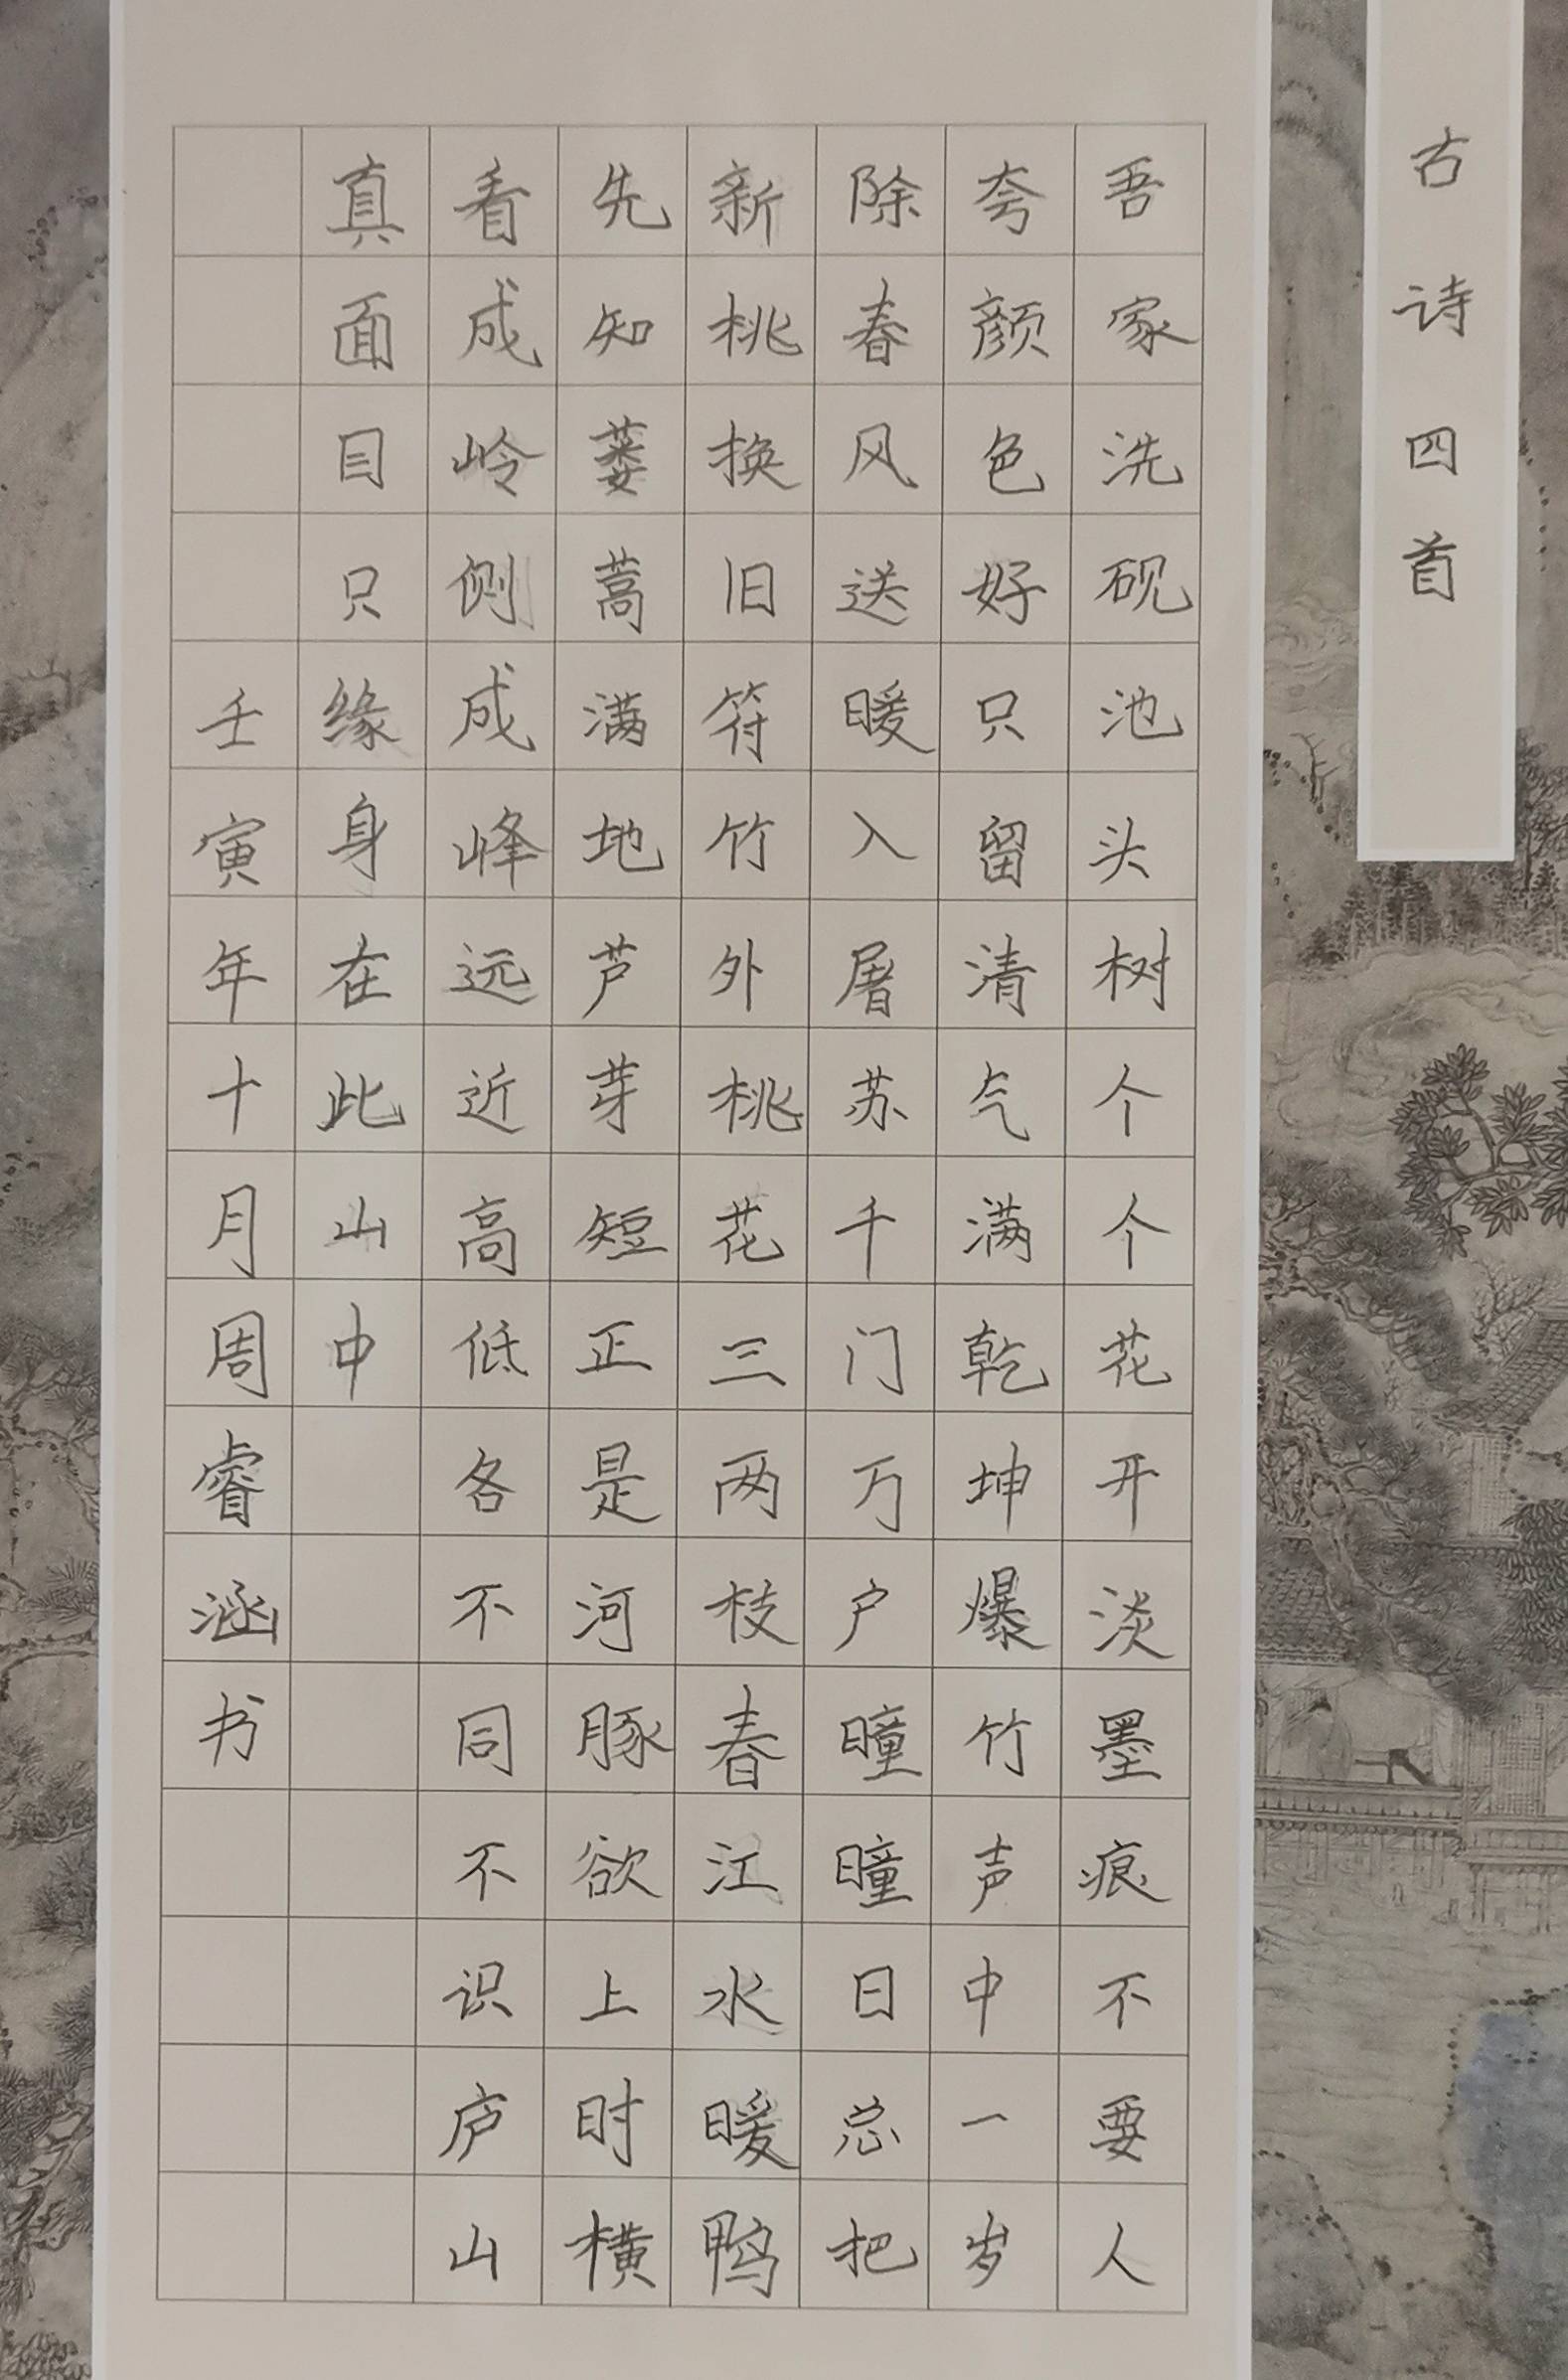 古诗四首
吾家洗砚池头树个个花开淡墨痕不要人
夸颜色好只留清气满乾坤爆竹声中一岁
除春风送暖入屠苏千门万户曈曈日总把
新桃换旧符竹外桃花三两枝春江水暖鸭
先知蒌蒿满地芦芽短正是河豚欲上时横
看成岭侧成峰远近高低各不同不识庐山
真面目只缘身在此山中
壬寅年十月周睿涵书